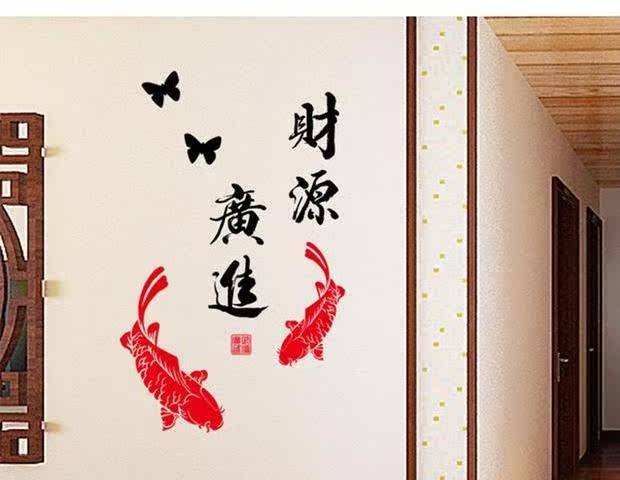 財源
廣進